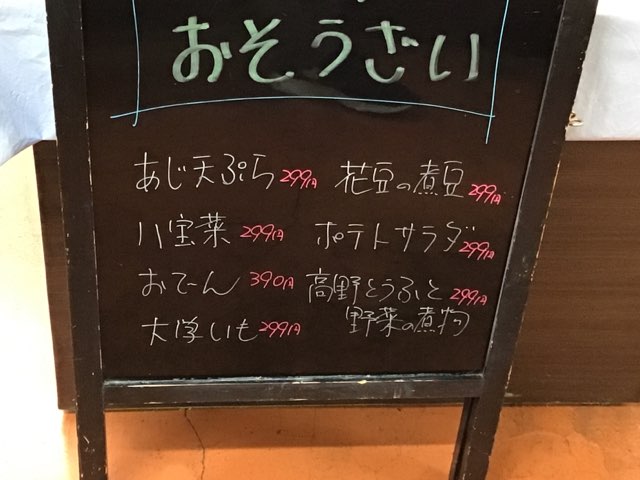 おそうざい
あじ天ぷら 299円
八宝菜 299円
おでーん 390円
大学いも 299円
花豆の煮豆 299円
ポテトサラダ 299円
高野とうふと 299円
野菜の煮物